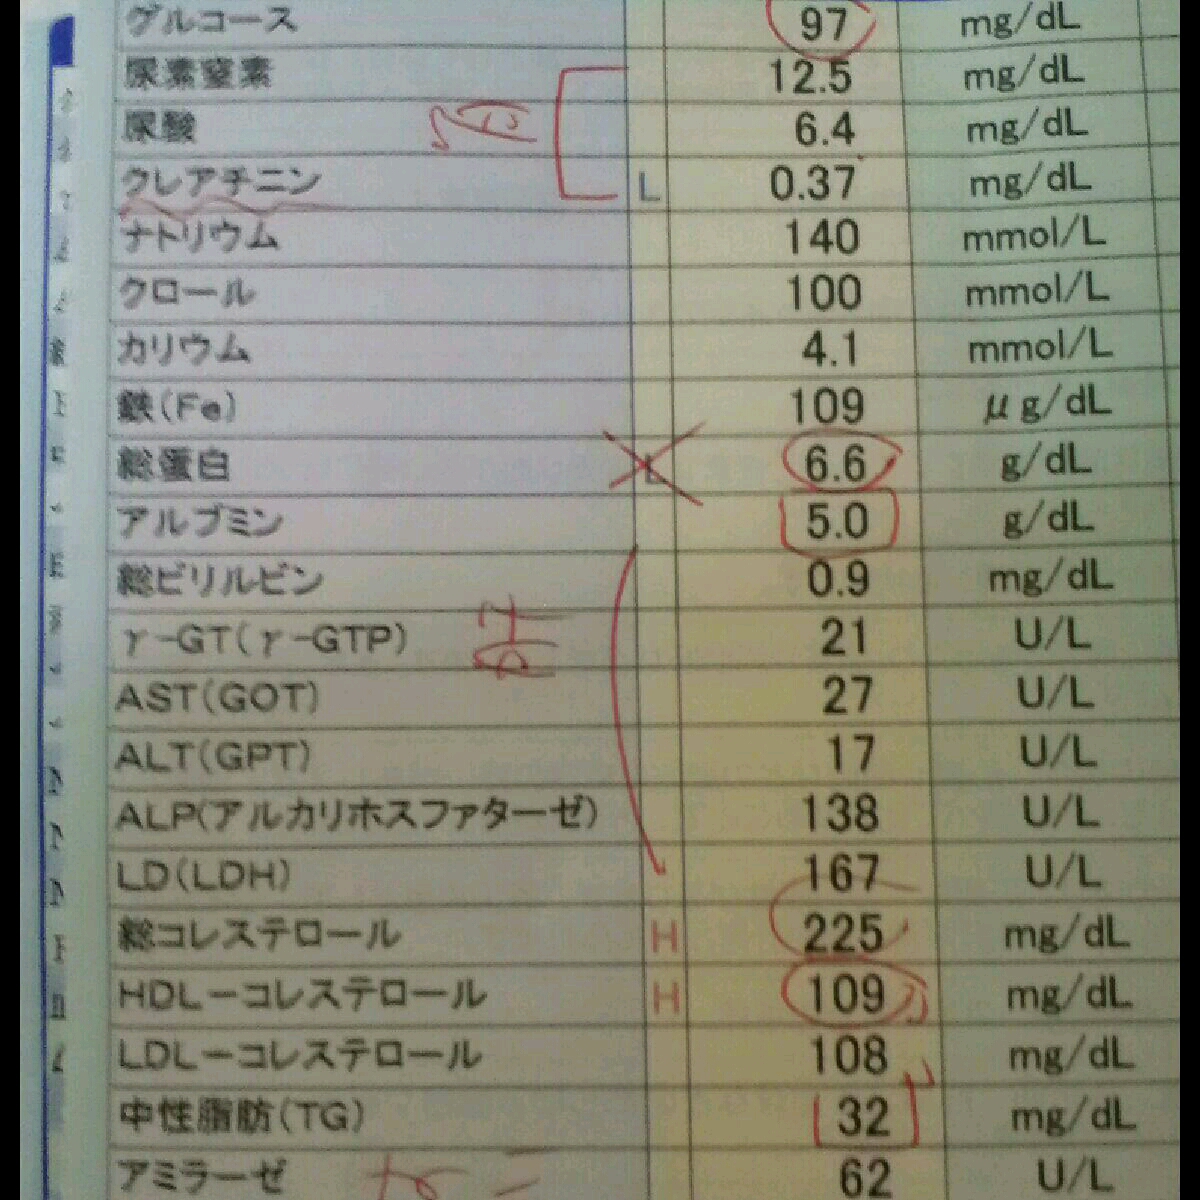 グルコース 97 mg/dL
尿素窒素 12.5 mg/dL
尿酸 6.4 mg/dL
クレアチニン L 0.37 mg/dL
ナトリウム 140 mmol/L
クロール 100 mmol/L
カリウム 4.1 mmol/L
鉄(Fe) 109 μg/dL
総蛋白 L 6.6 g/dL
アルブミン 5.0 g/dL
総ビリルビン 0.9 mg/dL
γ-GT(γ-GTP) 21 U/L
AST(GOT) 27 U/L
ALT(GPT) 17 U/L
ALP(アルカリホスファターゼ) 138 U/L
LD(LDH) 167 U/L
総コレステロール H 225 mg/dL
HDLーコレステロール H 109 mg/dL
LDLーコレステロール 108 mg/dL
中性脂肪(TG) 32 mg/dL
アミラーゼ 62 U/L